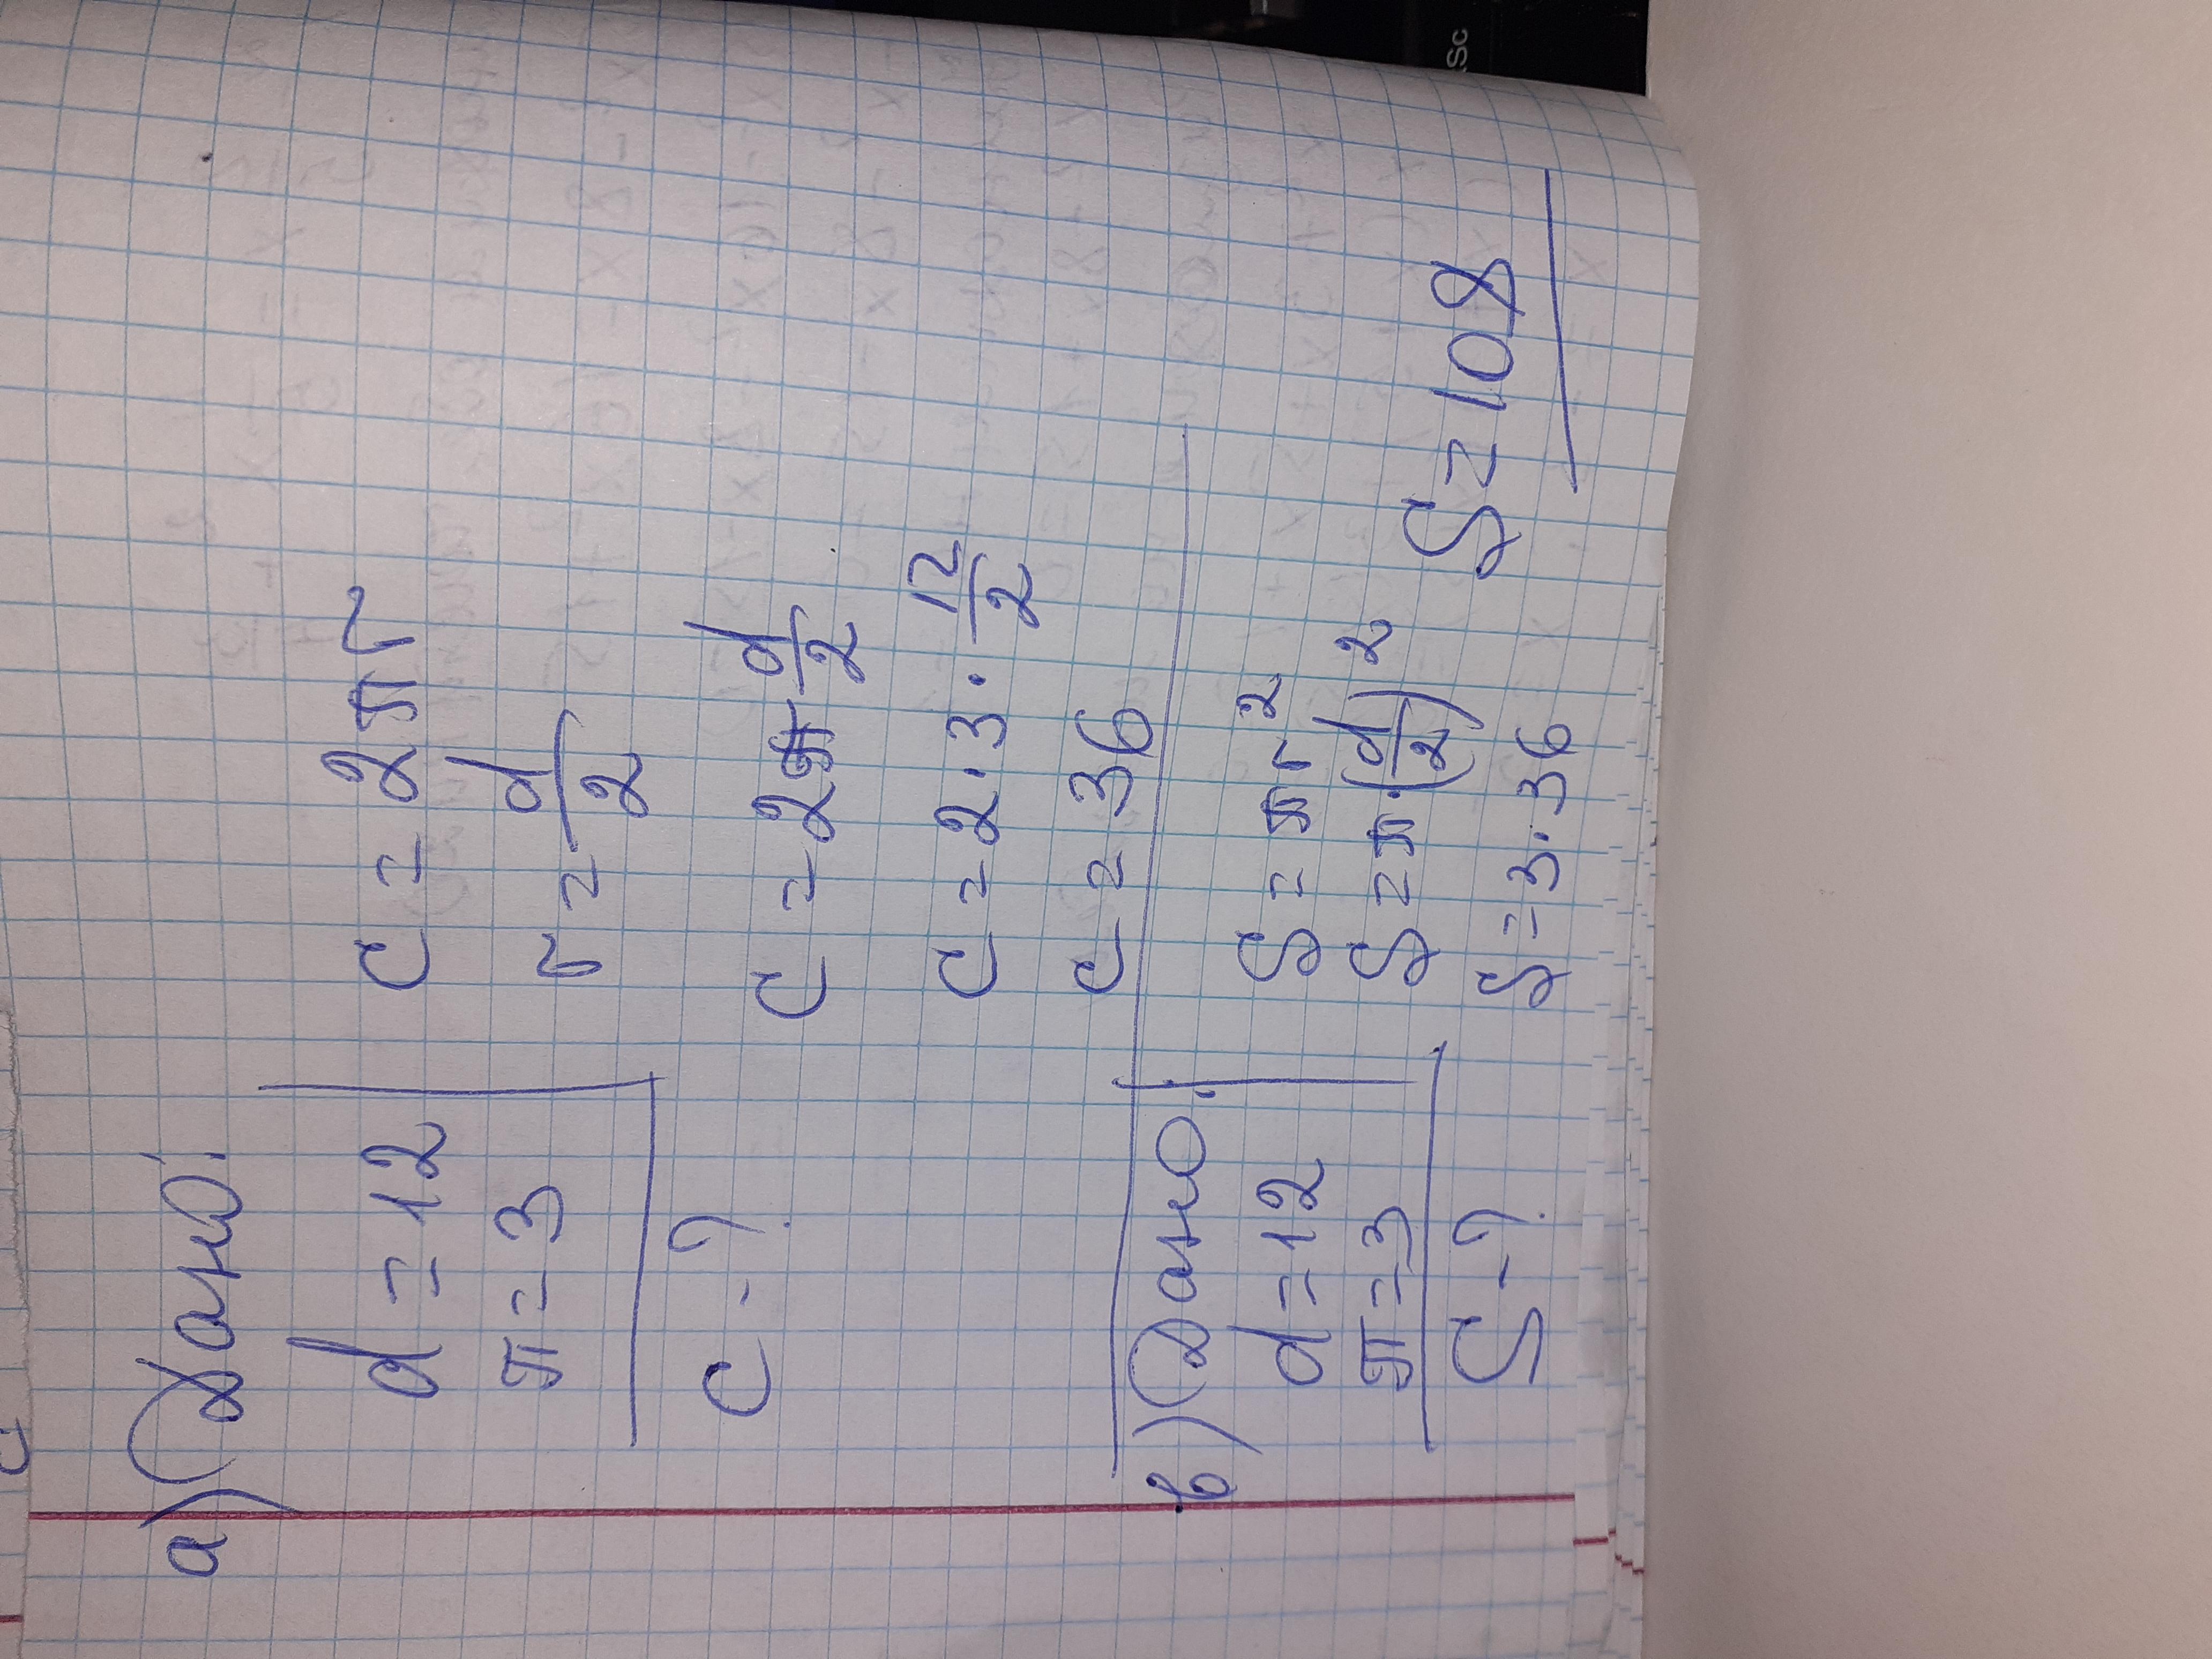 а) Дано:
d = 12
π = 3
C - ?
C = 2πr
r = d/2
C = 2π d/2
C = 2 · 3 · 12/2
C = 36
в) Дано:
d = 12
π = 3
S - ?
S = πr²
S = π · (d/2)²
S = 3 · 36
S = 108